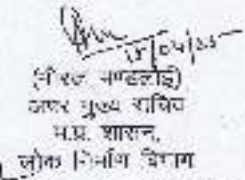 (नीरज मण्डलोई)
अपर मुख्य सचिव
म.प्र. शासन,
लोक निर्माण विभाग